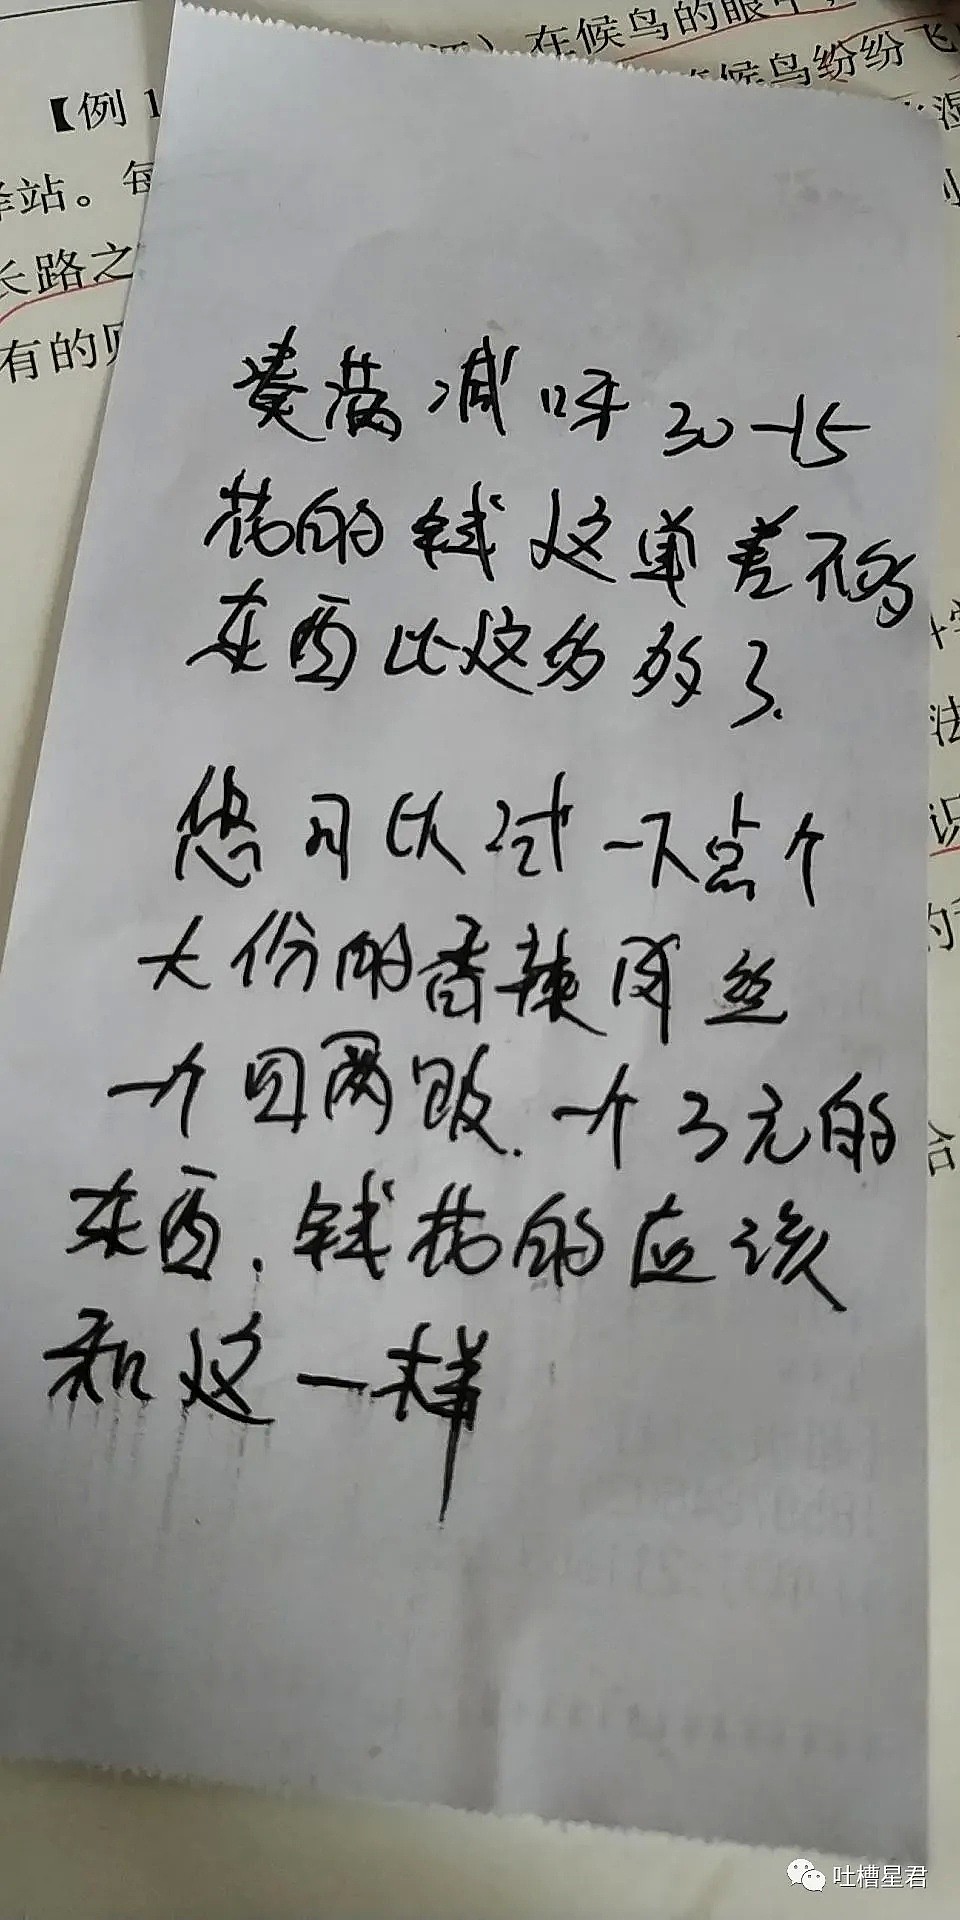 在候鸟的眼中,
【例1
候鸟纷纷飞
驿站。每
长路之
有的则
凑满减呀 30-15
花的钱这单差不多
东西比这多多了.
您可以试一下点个
大份的香辣肉丝
一个回两饭.一个3元的
东西.钱花的应该
和这一样
法
识
合
吐槽星君